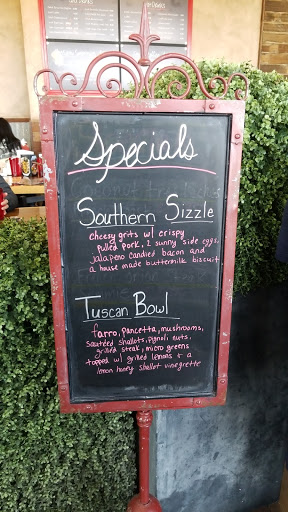 Specials
Southern Sizzle
cheesy grits w/ crispy
pulled pork, 2 sunny side eggs,
jalapeño candied bacon and
a house made buttermilk biscuit
Tuscan Bowl
farro, pancetta, mushrooms,
sautéed shallots, pignoli nuts,
grilled steak, micro greens
topped w/ grilled lemons & a
lemon honey shallot vinegrette